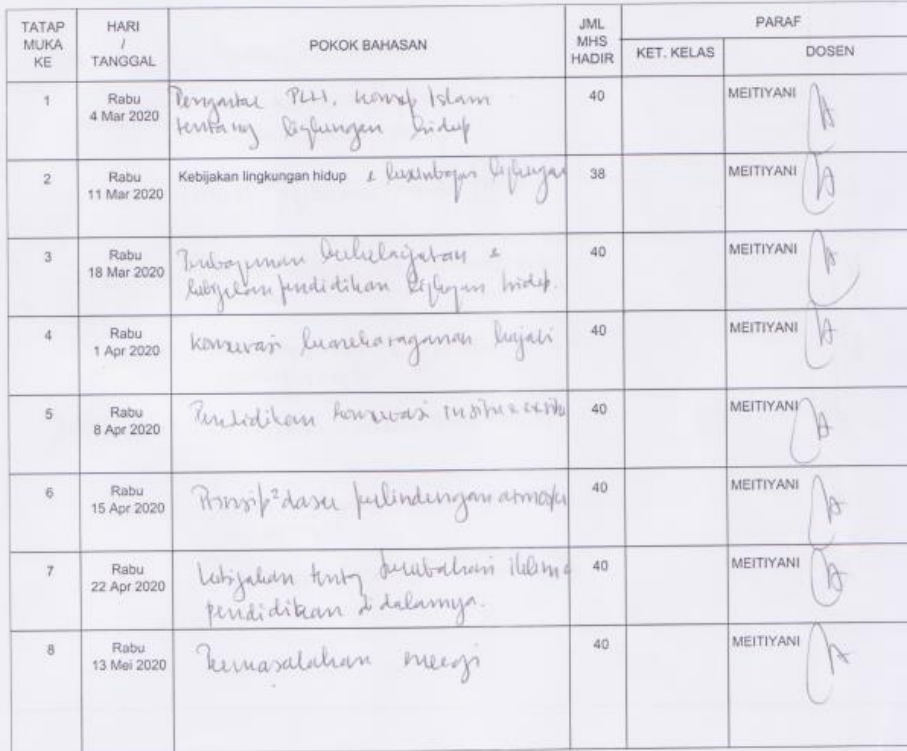 TATAP MUKA KE
HARI / TANGGAL
POKOK BAHASAN
JML MHS HADIR
PARAF
KET. KELAS
DOSEN
1
Rabu
4 Mar 2020
Pengantar PLH, konsep Islam
tentang lingkungan hidup
40
MEITIYANI
2
Rabu
11 Mar 2020
Kebijakan lingkungan hidup &
38
MEITIYANI
3
Rabu
18 Mar 2020
Pembangunan berkelanjutan &
kebijakan pendidikan lingkungan hidup.
40
MEITIYANI
4
Rabu
1 Apr 2020
Konservasi keanekaragaman hayati
40
MEITIYANI
5
Rabu
8 Apr 2020
Pendidikan konservasi insitu & exsitu
40
MEITIYANI
6
Rabu
15 Apr 2020
Prinsip² dasar perlindungan
40
MEITIYANI
7
Rabu
22 Apr 2020
kebijakan tentg perubahan iklim
pendidikan didalamnya.
40
MEITIYANI
8
Rabu
13 Mei 2020
Permasalahan energi
40
MEITIYANI